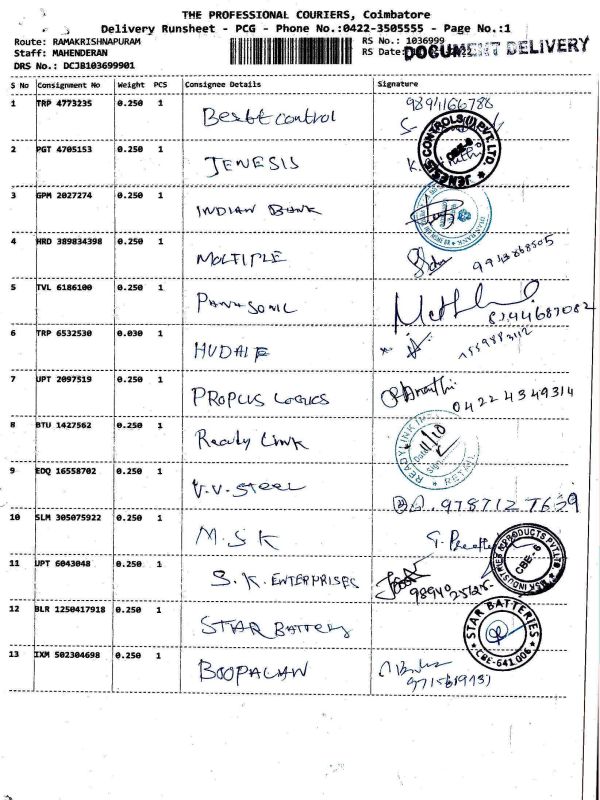 THE PROFESSIONAL COURIERS, Coimbatore
Delivery Runsheet - PCG - Phone No.:0422-3505555 - Page No.:1
Route: RAMAKRISHNAPURAM
RS No.: 1036999
Staff: MAHENDERAN
RS Date:
DOCUMENT DELIVERY
DRS No.: DCJB103699901
S No Consignment No Weight PCS Consignee Details Signature
1 TRP 4773235 0.250 1 Bestt control
2 PGT 4705153 0.250 1 JENESIS
JENESIS CONTROLS(I)PVT.LTD.
3 GPM 2027274 0.250 1 INDIAN BANK
4 HRD 389834398 0.250 1 MOLTIPLE
5 TVL 6186100 0.250 1 PANASONIC
6 TRP 6532530 0.030 1
7 UPT 2097519 0.250 1 PROPLUS LOGICS 0422 4349314
8 BTU 1427562 0.250 1 Ready Link
READYLINK
9 EDQ 16558702 0.250 1 V.V.STEEL
10 SLM 305075922 0.250 1 M.S.K
MSK INDUSTRIES PRODUCTS PVT.LTD
11 UPT 6043048 0.250 1 S.K. ENTERPRISES
12 BLR 1250417918 0.250 1 STAR BATTERY
STAR BATTERIES
CBE-641 006
13 IXM 502304698 0.250 1 BOOPALAN